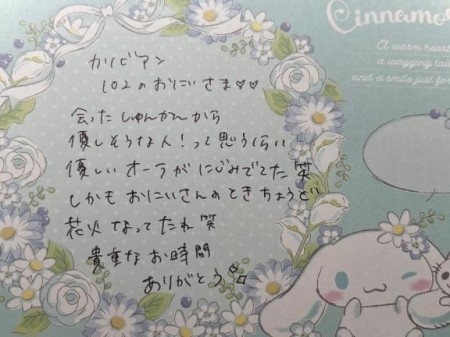 Cinnamo
A warm hear
a wagging tai
and a smile just fo
カリビアン
102のおにいさま♡♡
会ったしゅんかんから
優しそうな人！って思うくらい
優しいオーラがにじみでてた 笑
しかもおにいさんのときちょうど
花火なってたね 笑
貴重なお時間
ありがとう